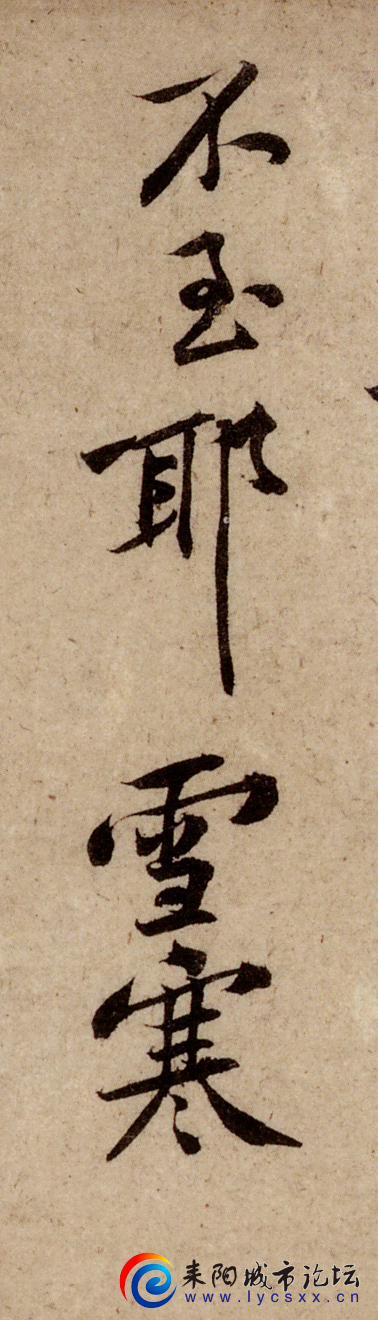 不至耶雪寒
耒阳城市论坛
www.lycsxx.cn